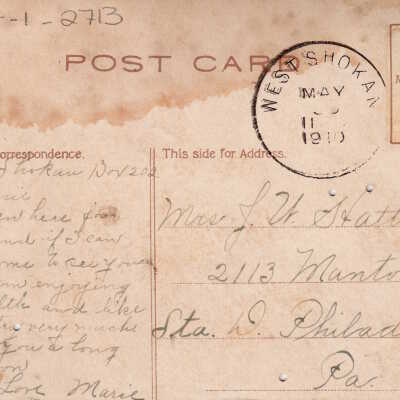 -1-2713
POST CARD
WEST SHOKAN
MAY
11
1910
orrespondence.
This side for Address.
Shokan Box 202
here for
and if I can
me to see you
am enjoying
lth and like
very much
you a long
Love Marie
Mrs J. W. Hatt
2113 Manto
Sta. D. Philad
Pa.